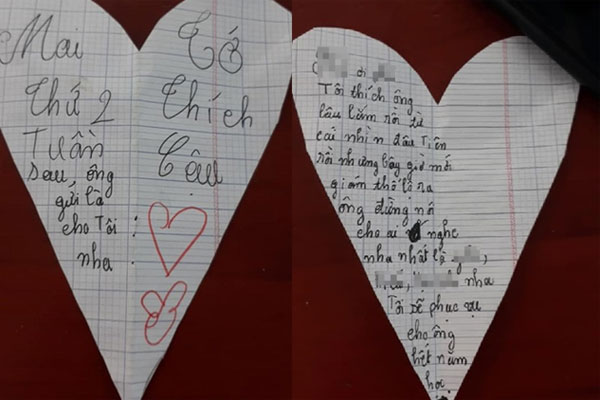 Mai
Thứ 2
Tuần
sau, ông
gửi là
cho Tôi :
nha .
Tớ
Thích
Cậu
ơi
Tôi thích ông
lâu lắm rồi từ
cái nhìn đâu Tiên
rồi nhưng bây giờ mới
giám thổ lộ ra
ông đừng nói
cho ai nghe
nha nhất là
nha
Tôi sẽ phục vụ
cho ông
hết năm
học